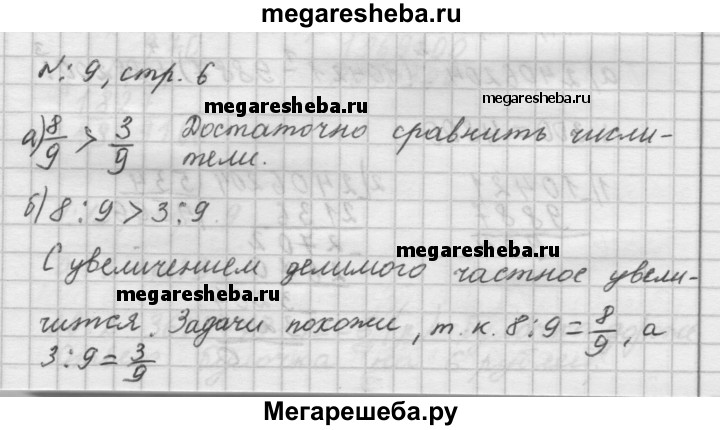 megaresheba.ru
№: 9, стр. 6
megaresheba.ru
megaresheba.ru
а) 8/9 > 3/9 Достаточно сравнить числи-
тели.
б) 8 : 9 > 3 : 9
megaresheba.ru
С увеличением делимого частное увели-
megaresheba.ru
чится. Задачи похожи, т. к. 8 : 9 = 8/9, а
3 : 9 = 3/9
Мегарешеба.ру